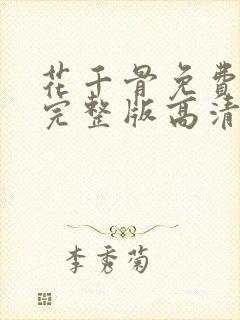 花千骨免费
完整版高清
李秀菊